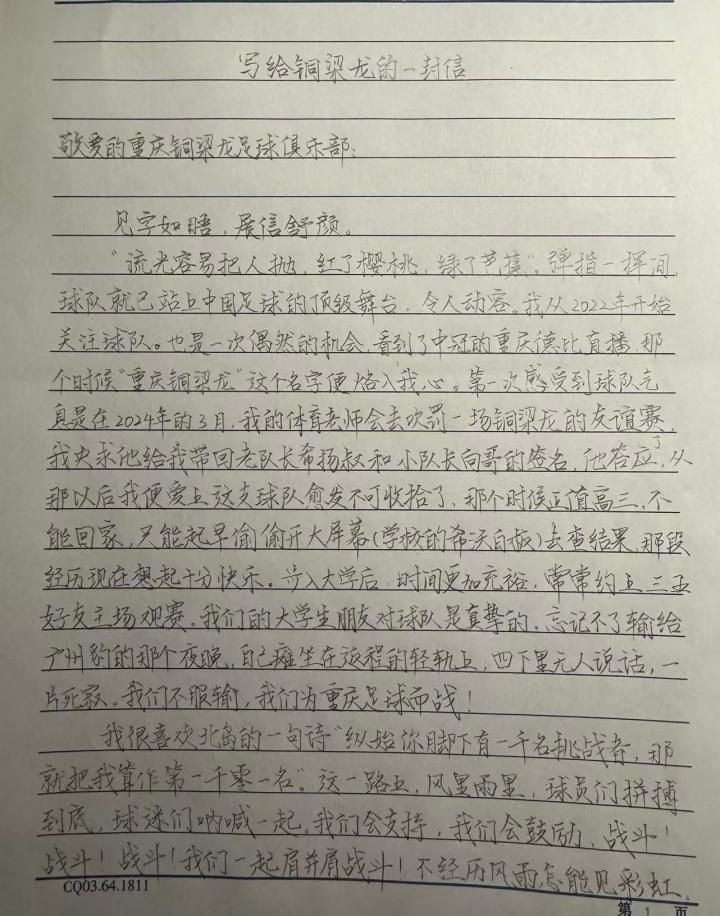 写给铜梁龙的一封信
敬爱的重庆铜梁龙足球俱乐部:
见字如晤,展信舒颜。
“流光容易把人抛,红了樱桃,绿了芭蕉”。弹指一挥间,
球队就已站上中国足球的顶级舞台,令人动容。我从2022年开始
关注球队。也是一次偶然的机会,看到了中冠的重庆德比直播,那
个时候“重庆铜梁龙”这个名字便烙入我心。第一次感受到球队气
息是在2024年的3月,我的体育老师会去吹罚一场铜梁龙的友谊赛,
我央求他给我带回老队长希扬叔和小队长向哥的签名,他答应了,从
那以后我便爱上这支球队愈发不可收拾了,那个时候正值高三,不
能回家,只能起早偷偷开大屏幕(学校的希沃白板)去查结果,那段
经历现在想起十分快乐。步入大学后,时间更加充裕,常常约上三五
好友主场观赛,我们的大学生朋友对球队是真挚的,忘记不了输给
广州豹的那个夜晚,自己瘫坐在返程的轻轨上,四下里无人说话,一
片死寂。我们不服输,我们为重庆足球而战!
我很喜欢北岛的一句诗“纵始你脚下有一千名挑战者,那
就把我算作第一千零一名”。这一路上,风里雨里,球员们拼搏
到底,球迷们呐喊一起。我们会支持,我们会鼓励,战斗!
战斗!战斗!我们一起肩并肩战斗!不经历风雨怎能见彩虹,
CQ03.64.1811
第 1 页